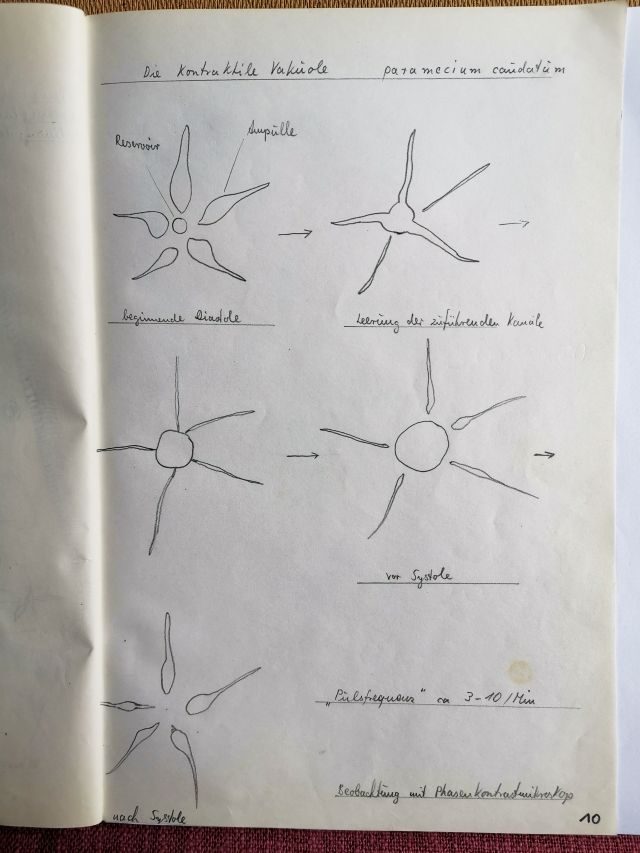 Die kontraktile Vakuole paramecium caudatum
Reservoir
Ampulle
beginnende Diastole
Leerung der zuführenden Kanäle
vor Systole
„Pulsfrequenz“ ca 3-10/Min
Beobachtung mit Phasenkontrastmikroskop
nach Systole
10